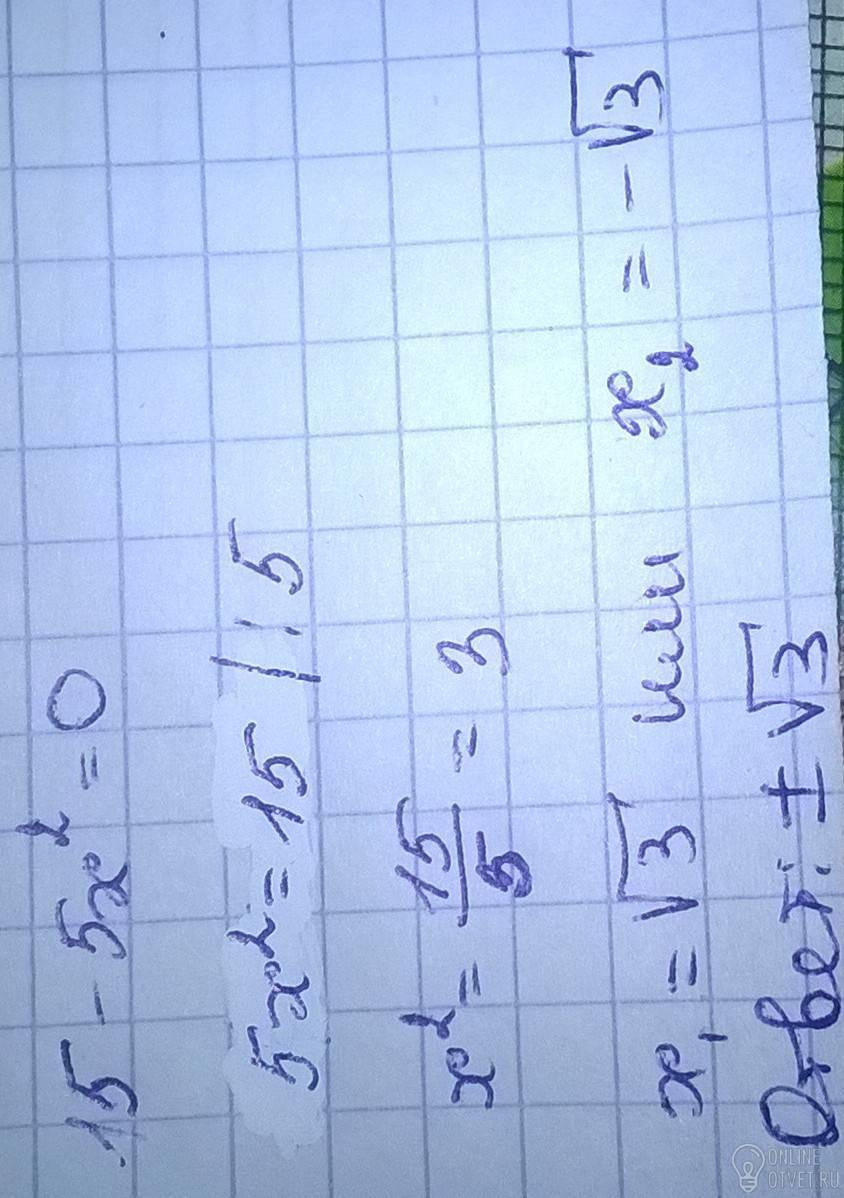 15 - 5x² = 0
5x² = 15 | : 5
x² = 15/5 = 3
x₁ = √3 или x₂ = -√3
Ответ: ± √3
ONLINE
OTVET.RU